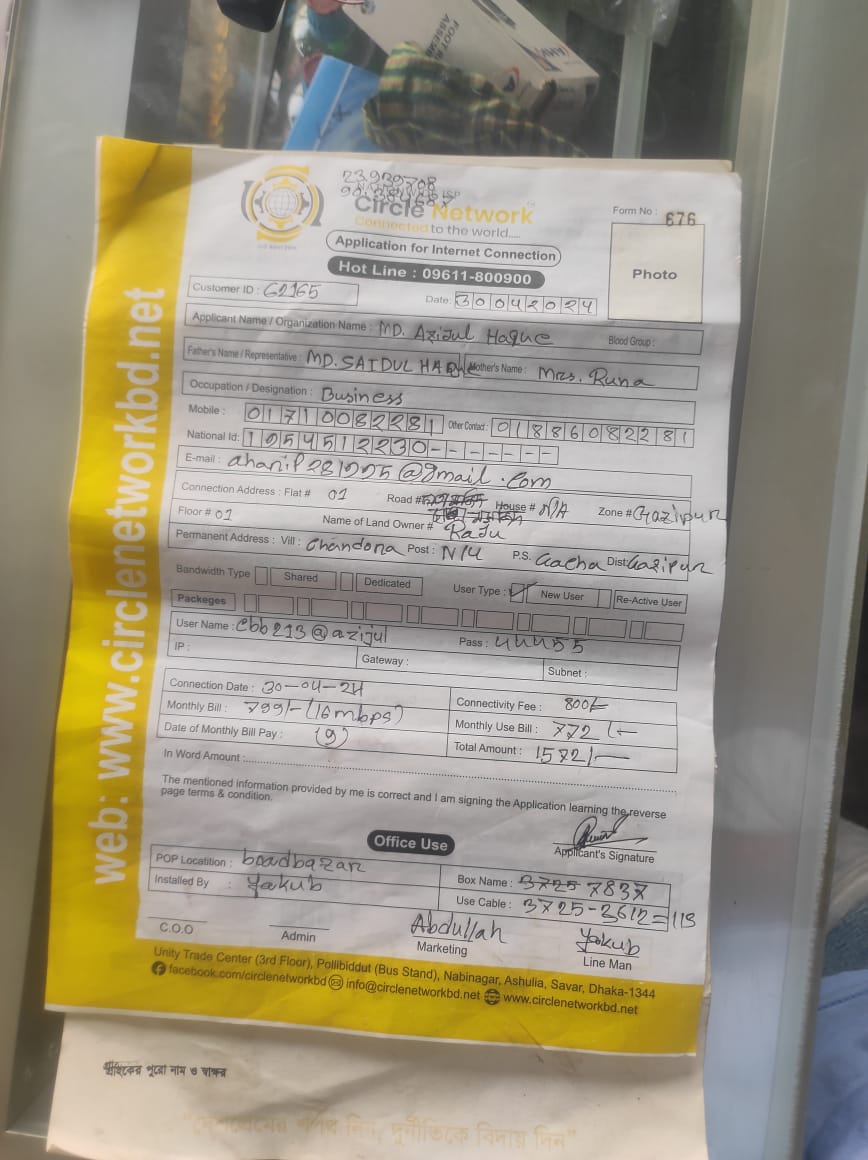 23.939708
90.384687
ISP
Circle Network
Connected to the world....
Application for Internet Connection
Hot Line : 09611-800900
Form No : 676
Photo
Customer ID : 62165
Date: 30042024
Applicant Name / Organization Name : MD. Azijul Haque Blood Group :
Father's Name / Representative : MD. SAIDUL HAQUE Mother's Name : Mrs. Runa
Occupation / Designation : Business
Mobile : 01710082281 Other Contact : 01886082281
National Id: 1954512230------
E-mail : ahanif281995@gmail.com
Connection Address : Flat # 01 Road # House # N/A Zone # Gazipur
Floor # 01 Name of Land Owner # Raju
Permanent Address : Vill : Chandona Post : N/U P.S. Gacha Dist: Gazipur
Bandwidth Type Shared Dedicated User Type : New User Re-Active User
Packeges
User Name : cbb213@azijul Pass : 44455
IP : Gateway : Subnet :
Connection Date : 30-04-24 Connectivity Fee : 800/-
Monthly Bill : 799/-(16mbps) Monthly Use Bill : 772/-
Date of Monthly Bill Pay : (9) Total Amount : 1572/-
In Word Amount :
The mentioned information provided by me is correct and I am signing the Application learning the reverse
page terms & condition.
Applicant's Signature
Office Use
POP Locatition : boadbazar Box Name : 3725 7837
Installed By : Yakub Use Cable : 3725-3612=113
Abdullah Yakub
C.O.O Admin Marketing Line Man
Unity Trade Center (3rd Floor), Pollibiddut (Bus Stand), Nabinagar, Ashulia, Savar, Dhaka-1344
facebook.com/circlenetworkbd info@circlenetworkbd.net www.circlenetworkbd.net
web: www.circlenetworkbd.net
গ্রাহকের পুরো নাম ও স্বাক্ষর
"দেশপ্রেমের শপথ নিন, দুর্নীতিকে বিদায় দিন"